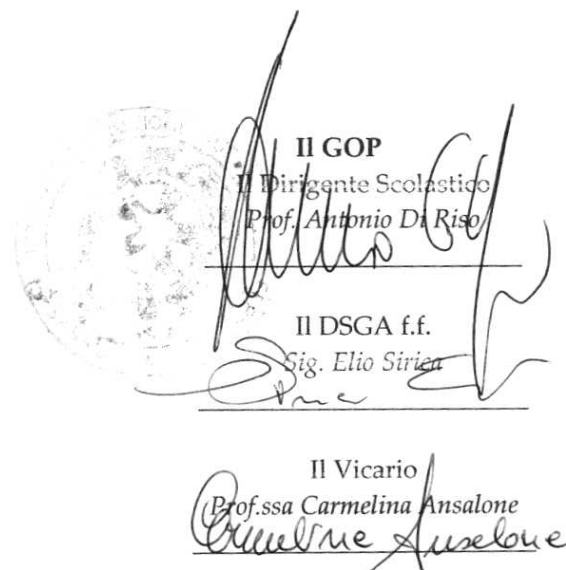 Il GOP
Il Dirigente Scolastico
Prof. Antonio Di Riso
Il DSGA f.f.
Sig. Elio Sirica
Il Vicario
Prof.ssa Carmelina Ansalone
Carmelina Ansalone